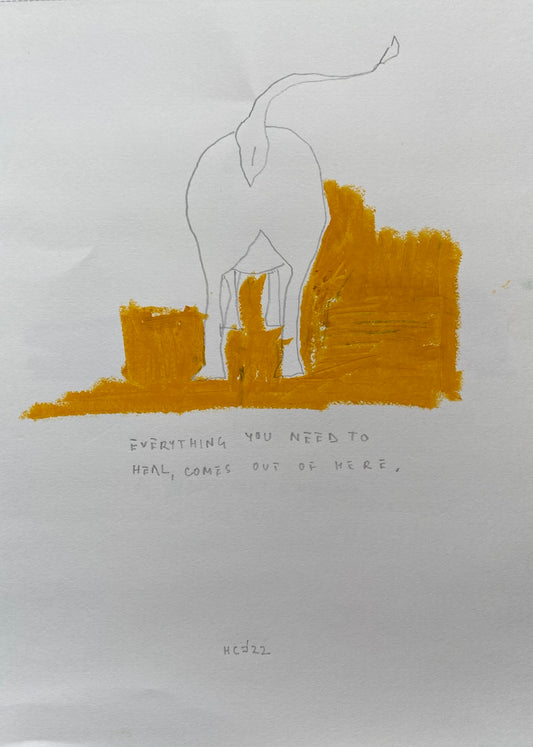 EVERYTHING YOU NEED TO
HEAL, COMES OUT OF HERE.